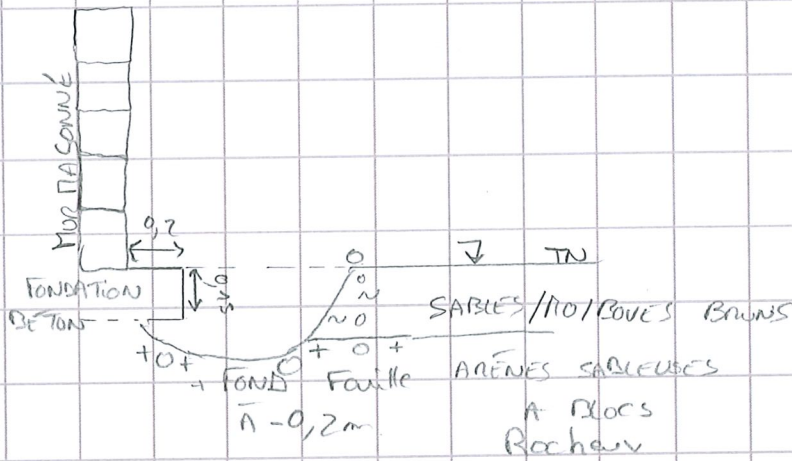 MUR MAÇONNÉ
0,2
TN
FONDATION
BÉTON
SABLES/MO/BOUES BRUNS
FOND Fouille
ARÈNES SABLEUSES
À -0,2m
A BLOCS
Rocheux